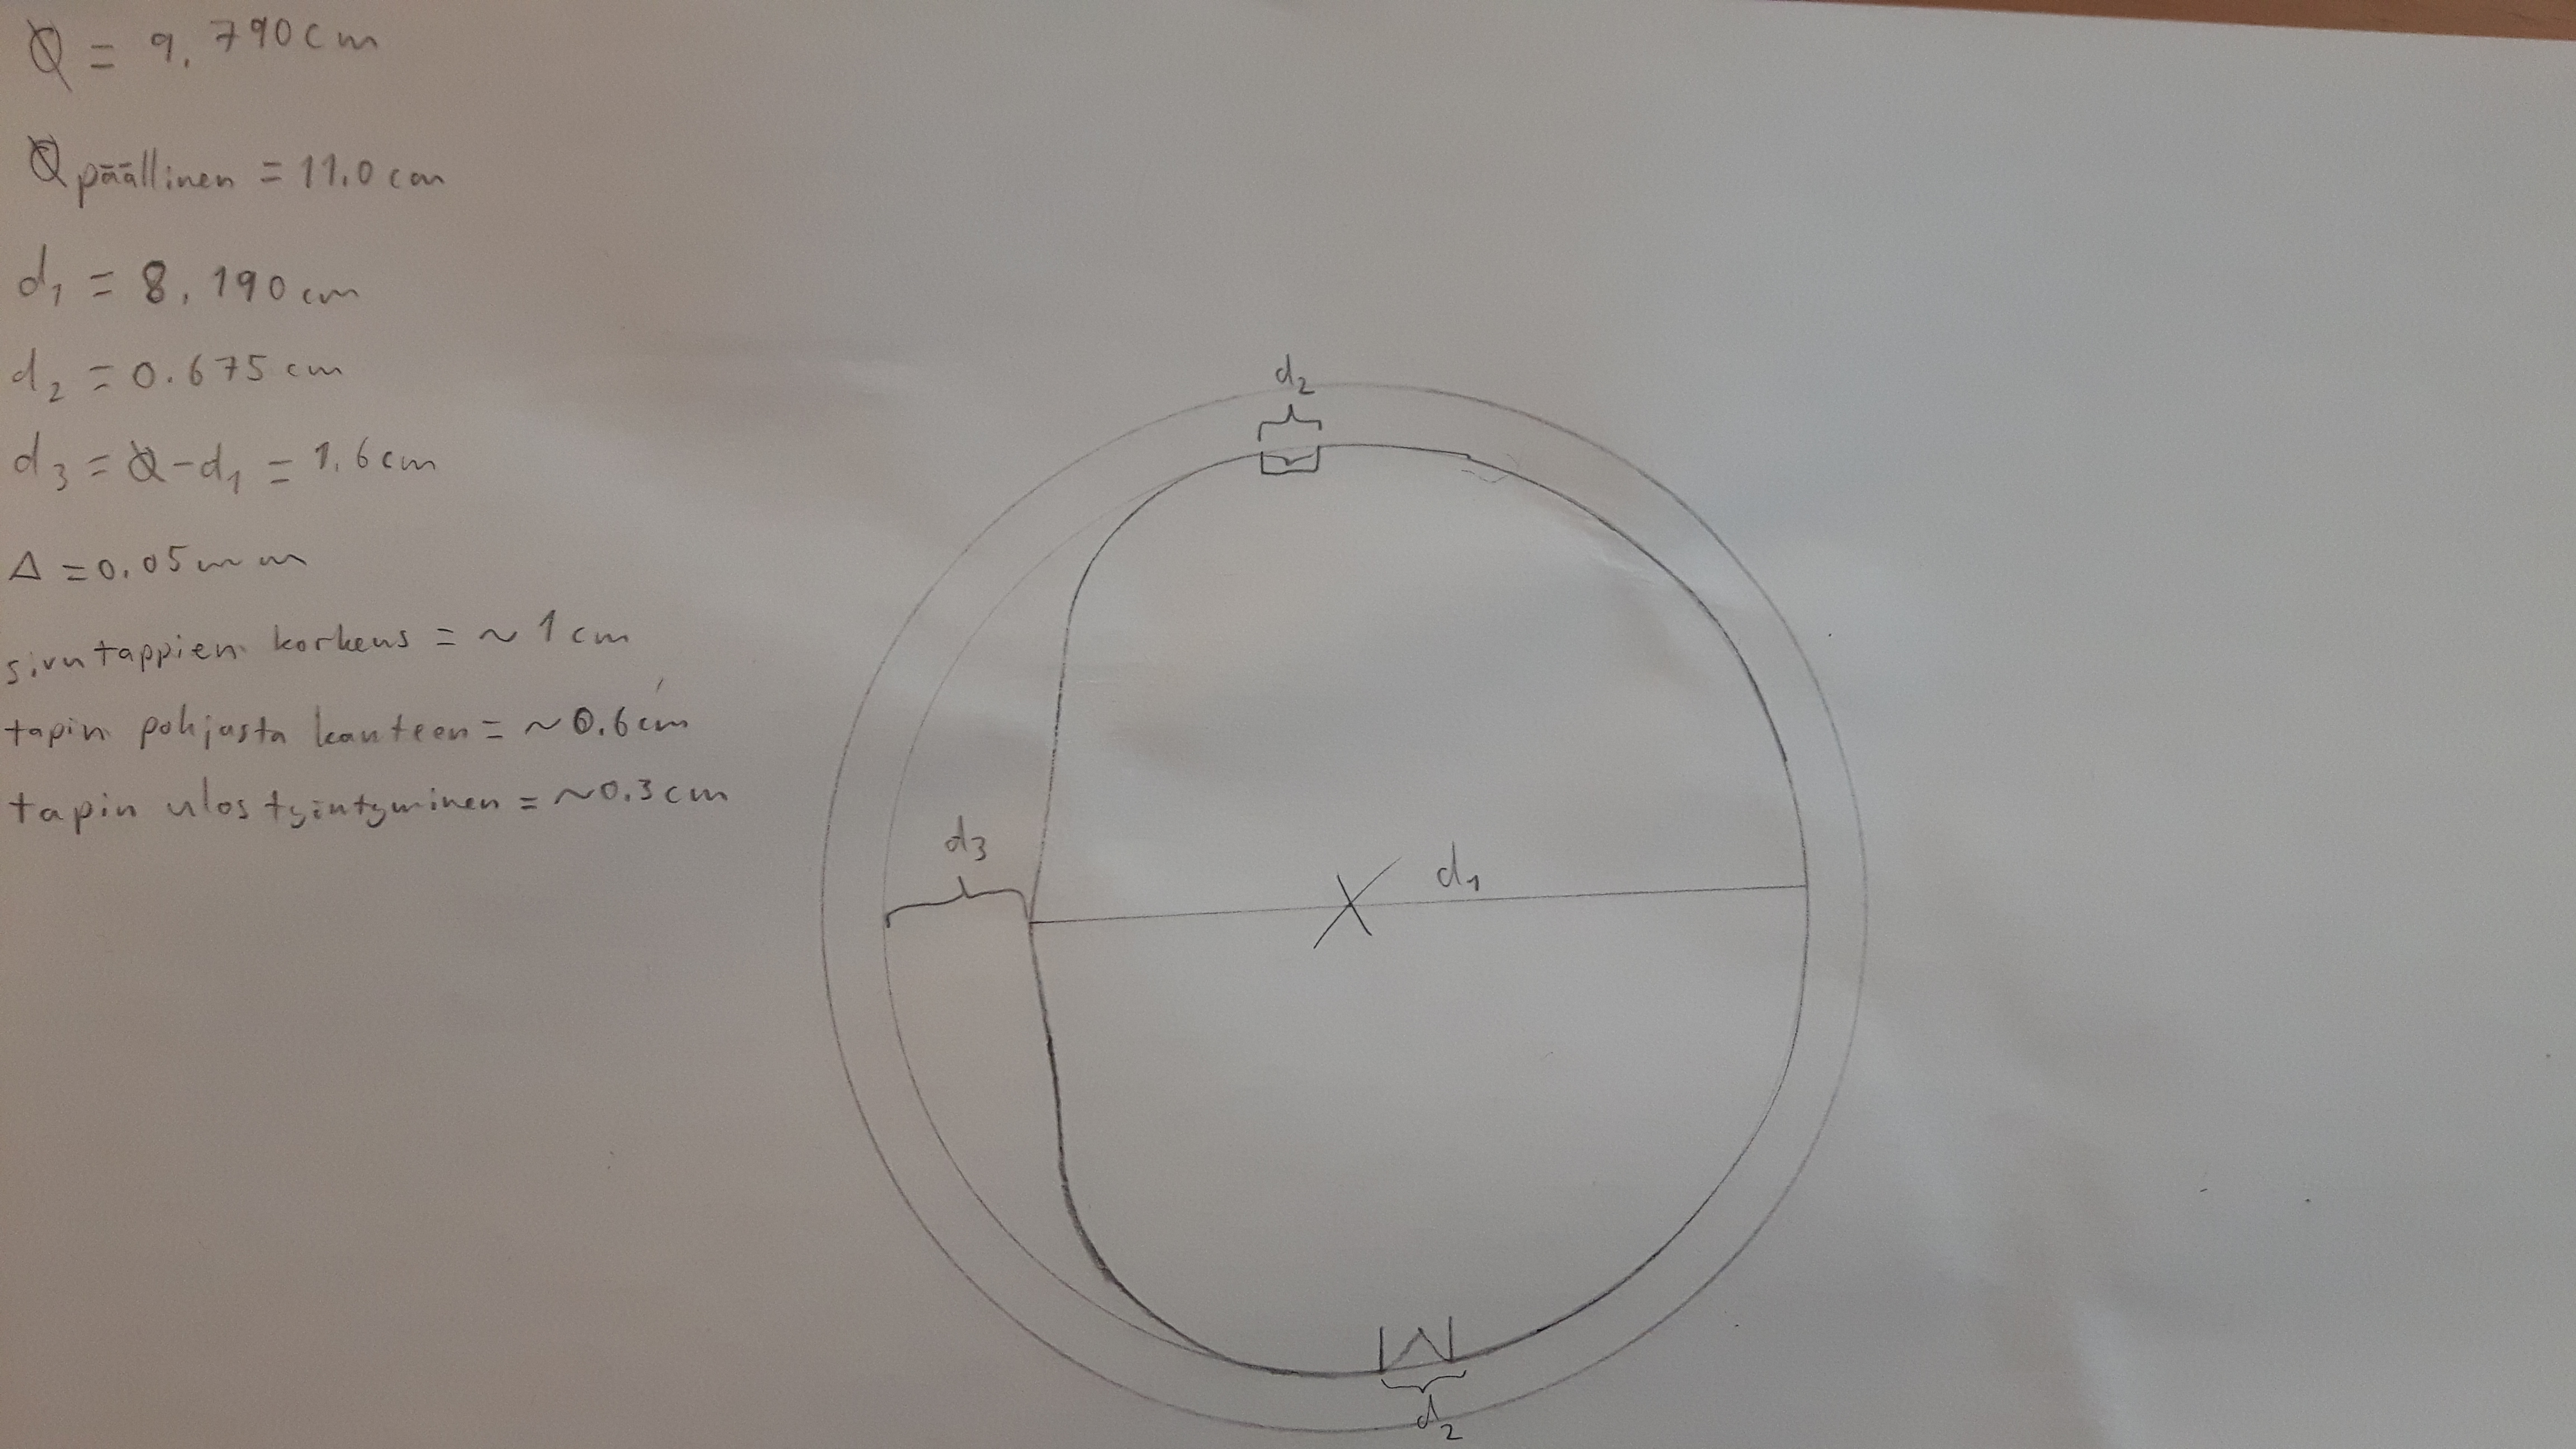 Ø = 9.790cm
Øpäällinen = 11.0cm
d1 = 8.190cm
d2 = 0.675cm
d3 = Ø-d1 = 1.6cm
Δ = 0.05mm
sivutappien korkeus = ~1cm
tapin pohjasta kanteen = ~0.6cm
tapin ulostyöntyminen = ~0.3cm
d3
d2
d1
d2